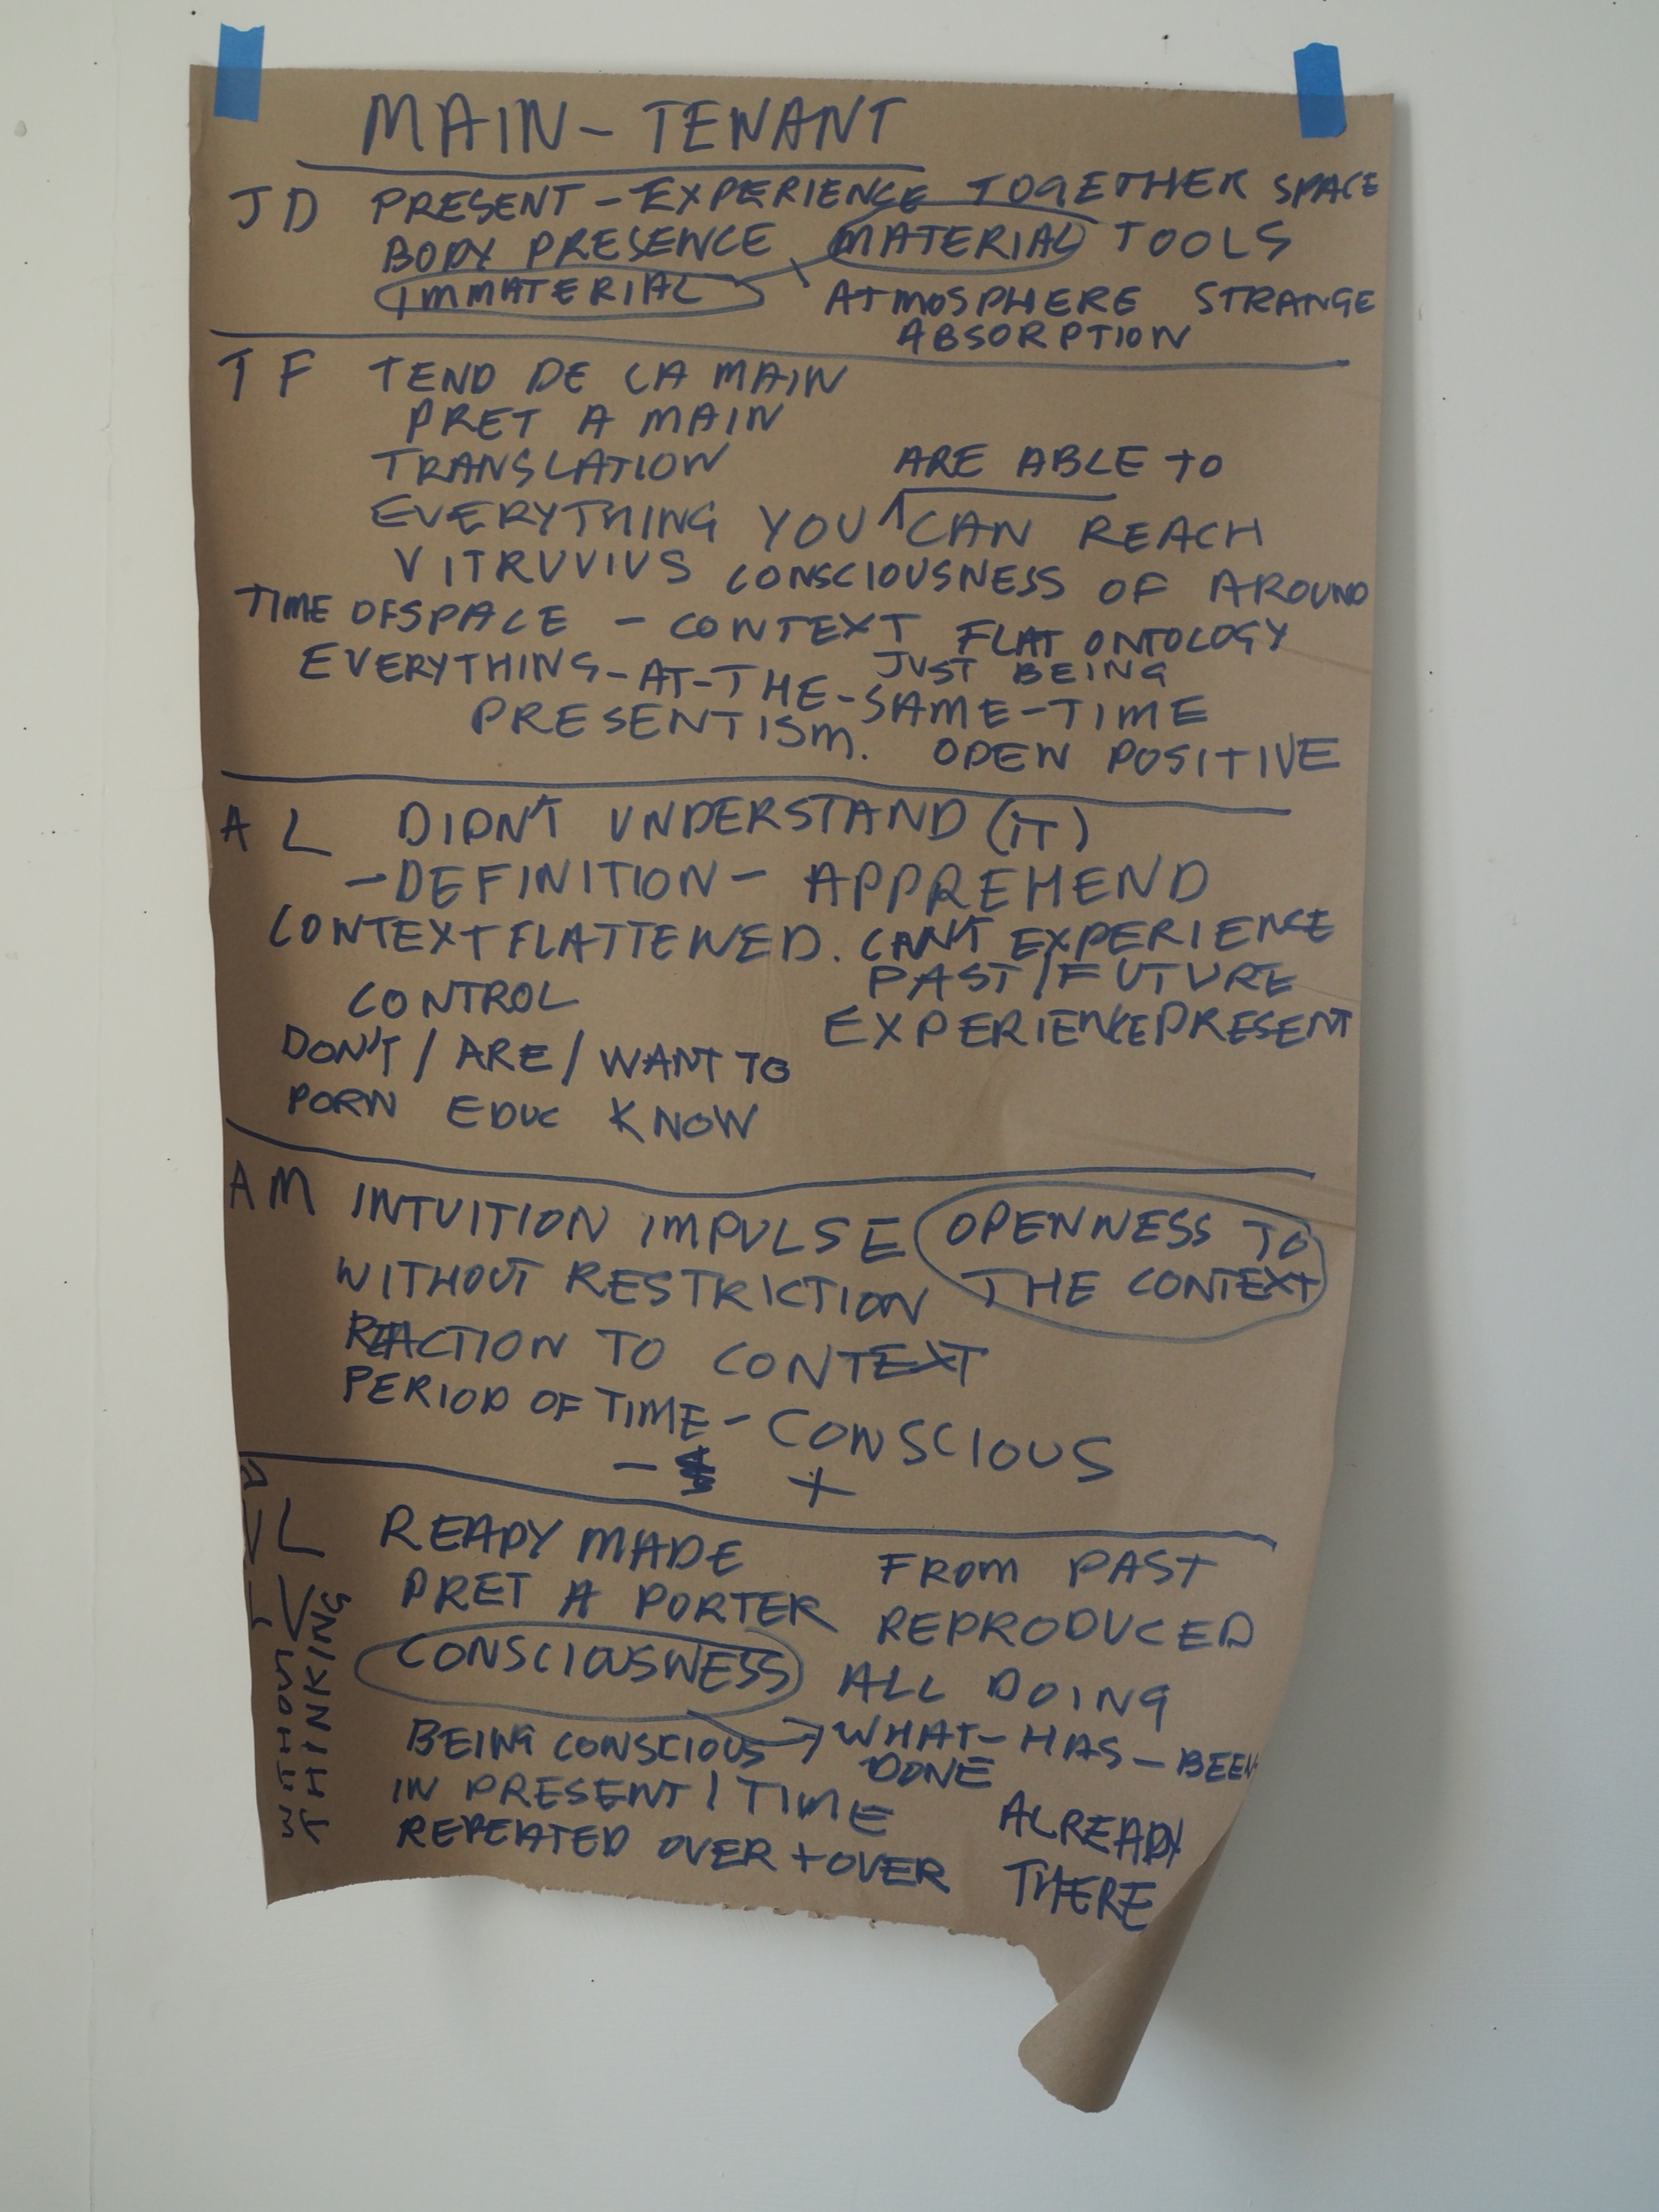 MAIN-TENANT
JD PRESENT-EXPERIENCE TOGETHER SPACE
BODY PRESENCE MATERIAL TOOLS
IMMATERIAL ATMOSPHERE STRANGE
ABSORPTION
TF TEND DE LA MAIN
PRET A MAIN
TRANSLATION ARE ABLE TO
EVERYTHING YOU CAN REACH
VITRUVVIUS CONSCIOUSNESS OF AROUND
TIME OFSPACE - CONTEXT FLAT ONTOLOGY
JUST BEING
EVERYTHING-AT-THE-SAME-TIME
PRESENTISM. OPEN POSITIVE
AL DIDN'T UNDERSTAND (IT)
-DEFINITION- APPREHEND
CONTEXT FLATTENED. CAN'T EXPERIENCE
PAST/FUTURE
CONTROL EXPERIENCE PRESENT
DON'T / ARE / WANT TO
PORN EDUC KNOW
AM INTUITION IMPULSE OPENNESS TO
WITHOUT RESTRICTION THE CONTEXT
REACTION TO CONTEXT
PERIOD OF TIME - CONSCIOUS
- +
VL READY MADE FROM PAST
PRET A PORTER REPRODUCED
CONSCIOUSNESS ALL DOING
BEING CONSCIOUS → WHAT-HAS-BEEN
DONE
IN PRESENT / TIME ALREADY
REPEATED OVER + OVER THERE
THINKING